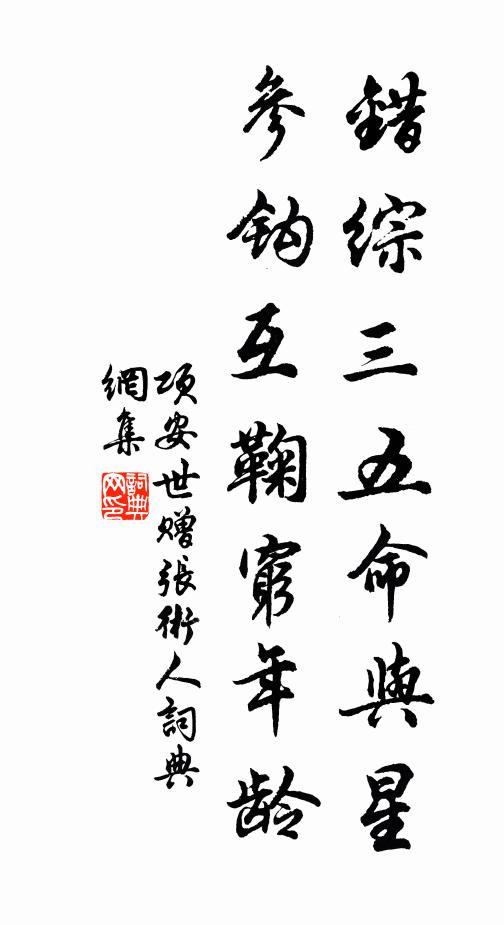 錯綜三五命與星
參鈎互鞠窮年龄
項安世贈張術人詞典
網集
詞典
网印